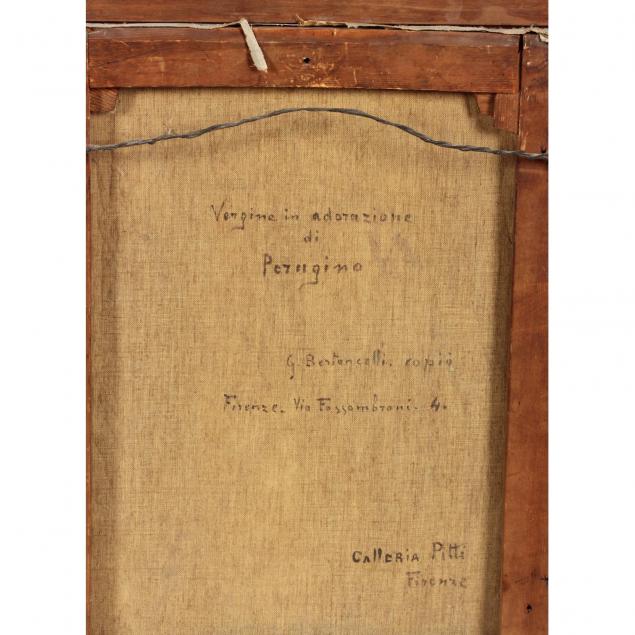 Vergine in adorazione
di
Perugino
G. Bertoncelli. copiò
Firenze. Via Fossombroni. 4.
Galleria Pitti
Firenze